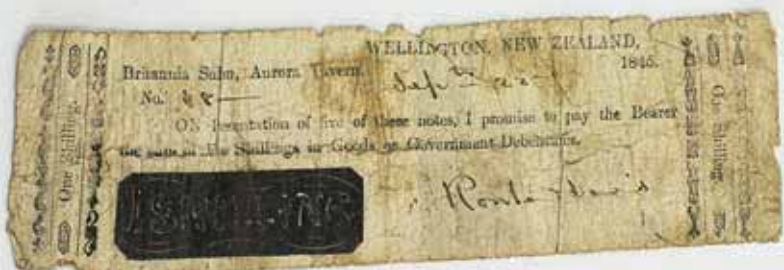 WELLINGTON, NEW ZEALAND,
Britannia Saloon, Aurora Tavern. 1845.
No.
ON Presentation of five of these notes, I promise to pay the Bearer
the sum of Five Shillings in Goods or Government Debentures.
1 SHILLING
One Shilling.
One Shilling.